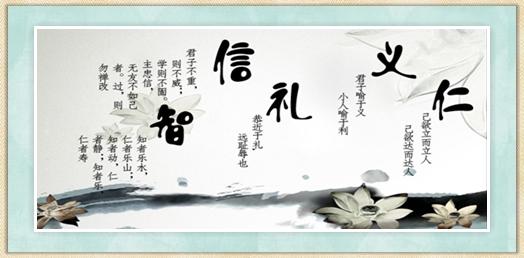 仁
己欲立而立人
己欲达而达人
义
君子喻于义
小人喻于利
礼
恭近于礼
远耻辱也
信
君子不重，
则不威；
学则不固。
主忠信，
无友不如己
者。过，则
勿禅改
智
知者乐水，
仁者乐山；
知者动，仁
者静；知者乐
仁者寿